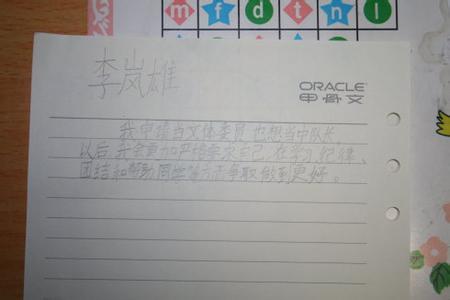 m f d t n l
李岚雄
ORACLE
甲骨文
我申请当文体委员,也想当中队长,
以后我会更加严格要求自己,在学习、纪律、
团结和帮助同学等方面争取做到更好。